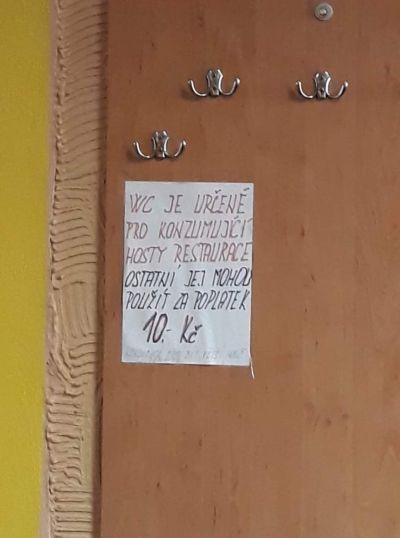 WC JE URČENÉ
PRO KONZUMUJÍCÍ
HOSTY RESTAURACE
OSTATNÍ JEJ MOHOU
POUŽÍT ZA POPLATEK
10.- Kč